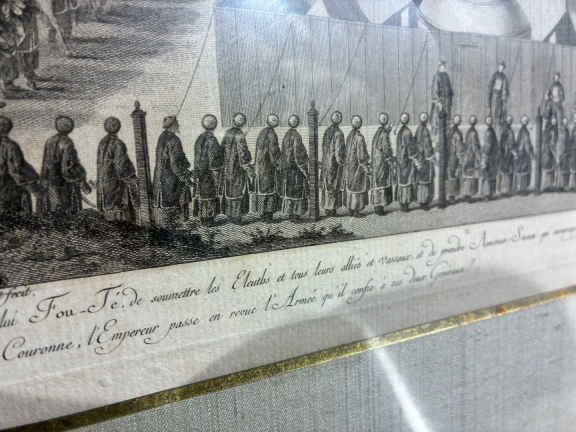 fecit.
lui Fou-Té, de soumettre les Eleuths et tous leurs alliés et vassaux, et de prendre Amour-Sana qui
Couronne, l'Empereur passe en revue l'Armée qu'il confie à ces deux Généraux.